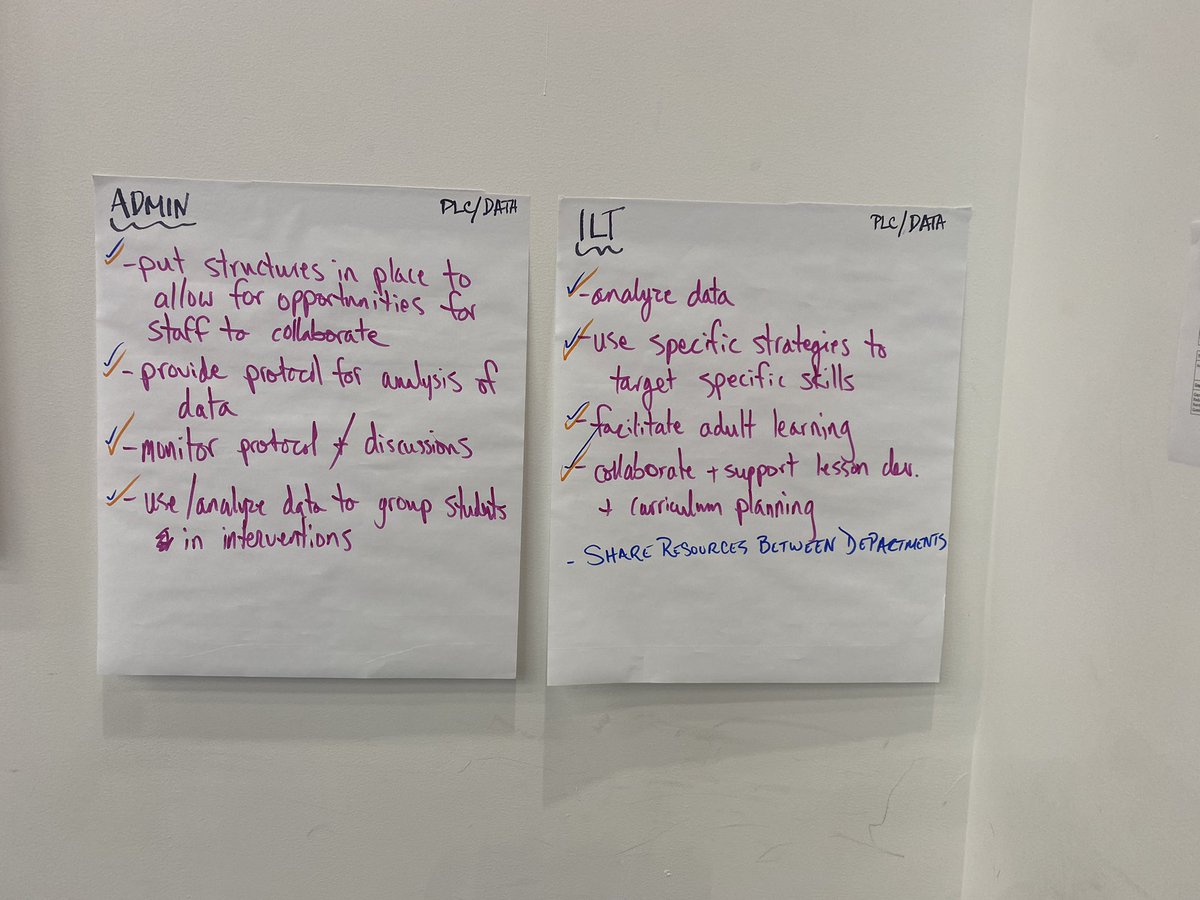 ADMIN
PLC/DATA
- put structures in place to
allow for opportunities for
staff to collaborate
- provide protocol for analysis of
data
- monitor protocol + discussions
- use/analyze data to group students
in interventions
ILT
PLC/DATA
- analyze data
- use specific strategies to
target specific skills
- facilitate adult learning
- collaborate + support lesson dev.
+ curriculum planning
- SHARE RESOURCES BETWEEN DEPARTMENTS